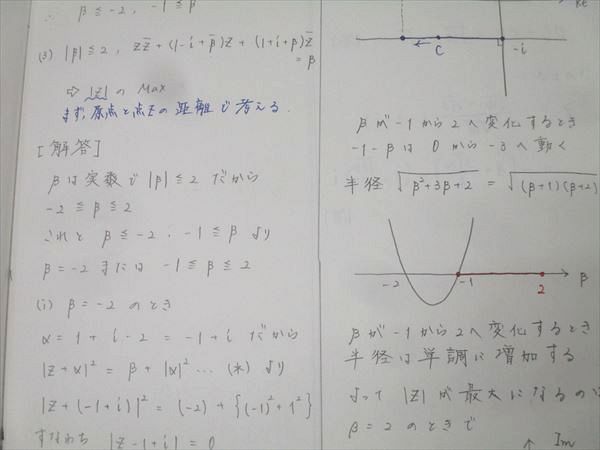 ∴ β ≦ -2 , -1 ≦ β
(3) |β| ≦ 2 , z z̄ + (1-i+β̄)z + (1+i+β) z̄
= β
⇨ |z| の Max
まず、原点と点zの距離で考える.
[解答]
βは実数で |β| ≦ 2 だから
-2 ≦ β ≦ 2
これと β ≦ -2 , -1 ≦ β より
β = -2 または -1 ≦ β ≦ 2
(i) β = -2 のとき
α = 1 + i - 2 = -1 + i だから
|z + α|² = β + |α|² … (*) より
|z + (-1+i)|² = (-2) + {(-1)² + 1²}
すなわち |z -1+i| = 0
Re
C
-i
βが -1から 2へ変化するとき
-1-β は 0 から -3 へ動く
半径 √(β²+3β+2) = √((β+1)(β+2))
-2 -1 2 β
βが -1から 2へ変化するとき
半径は単調に増加する
よって |z| が最大になるのは
β = 2 のときで
↑ Im